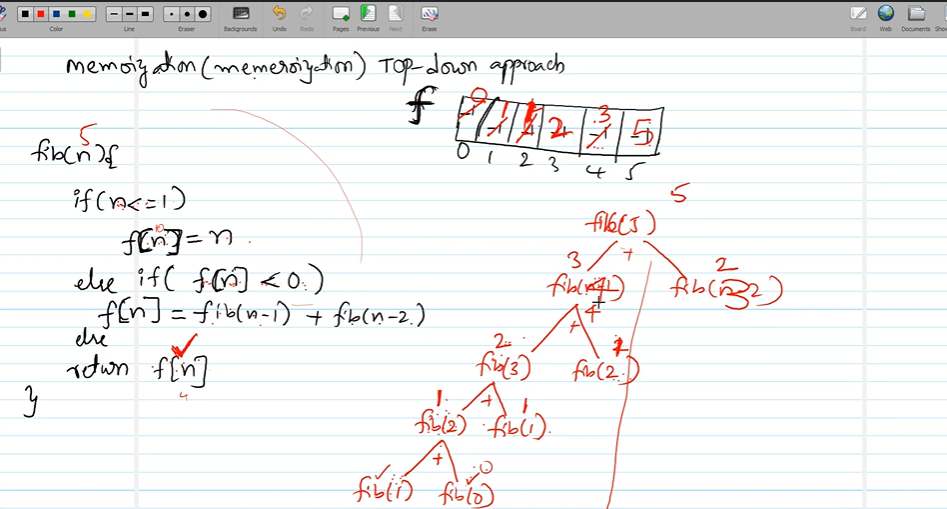 Color
Line
Eraser
Backgrounds
Undo
Redo
Pages
Previous
Next
Erase
Board
Web
Documents
Show
memoization(memeroization) TOP-down approach
f
0 1 1 2 3 5
-1 -1 -1 -1 -1 -1
0 1 2 3 4 5
5
fib(n){
if(n<=1)
f[n] = n
else if( f[n] < 0 )
f[n] = fib(n-1) + fib(n-2)
else
return f[n]
4
}
5
fib(5)
+
3 2
fib(n-1) fib(n-2)
4
+
2 1
fib(3) fib(2)
+
1 1
fib(2) fib(1)
+
0
fib(1) fib(0)